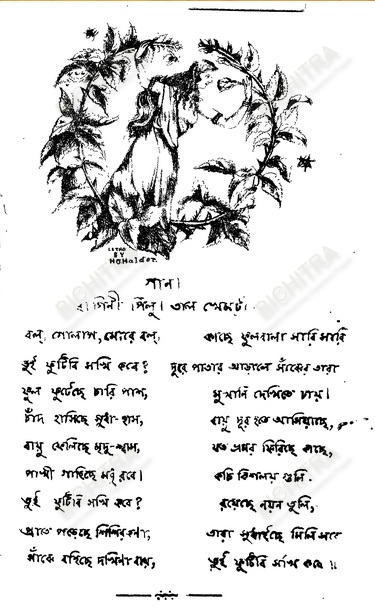 LITHO
BY
H.C.Halder.
গান।
রাগিনী পিলু। তাল খেমটা।
বল্, গোলাপ, মোরে বল্,
তুই ফুটিবি সখি কবে?
ফুল ফুটেছে চারি পাশ,
চাঁদ হাসিছে সুধা-হাস,
বায়ু ফেলিছে মৃদু-শ্বাস,
পাখী গাহিছে মধু রবে।
তুই ফুটিবি সখি কবে?
প্রাতে পড়েছে শিশির কণা,
সাঁঝে বহিছে দখিনা বায়,
কাছে ফুলবালা সারি সারি
দূরে পাতার আড়ালে সাঁঝের তারা
মুখানি দেখিতে চায়।
বায়ু দূর হতে আসিয়াছে,
যত ভ্রমর ফিরিছে কাছে,
কচি কিশলয় গুলি
রয়েছে নয়ন তুলি,
তারা সুধাইছে মিলি সবে
তুই ফুটিবি সখি কবে॥
BICHITRA